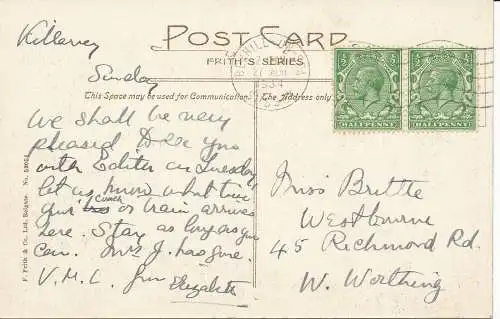 Killarney
Sunday
POST CARD
FRITH'S SERIES
This Space may be used for Communication.
The Address only
We shall be very
pleased to see you
with Edith on Tuesday
let us know what time
your coach or train arrives
here. Stay as long as you
can. Mrs J. has gone.
V. M. L. from
Elizabeth
Miss Brittle
Westbourne
45 Richmond Rd.
W. Worthing
HALFPENNY
HALFPENNY
F. Frith & Co., Ltd., Reigate.